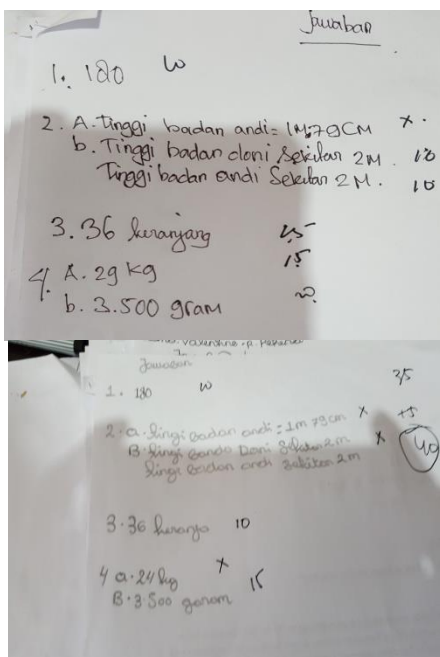 Jawaban
1. 180 10
2. A. Tinggi badan andi = 1M79CM x.
b. Tinggi badan doni Sekitar 2M. 10
Tinggi badan andi Sekitar 2M. 10
3. 36 keranjang
15
4. A. 29 kg
b. 3.500 gram 20
Jawaban
35
1. 180 10
+5
2. a. tingi badan andi = 1m 79cm x
40
B. tingi bando Doni Sekitar 2m x
tingi badan andi sekitar 2m
3. 36 keranja 10
4 a. 24 kg x
15
B. 3.500 garam